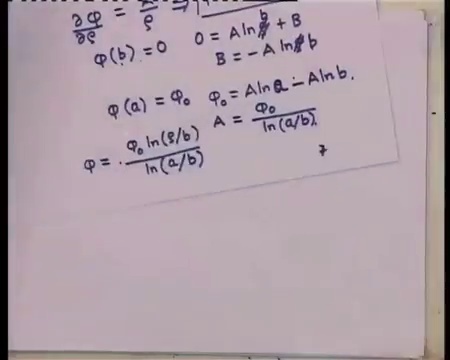 ∂φ/∂ρ = A/ρ ⇒
φ(b) = 0   0 = A ln b + B
B = - A ln b
φ(a) = φ₀   φ₀ = A ln a - A ln b.
A = φ₀ / ln(a/b)
φ = φ₀ ln(ρ/b) / ln(a/b)